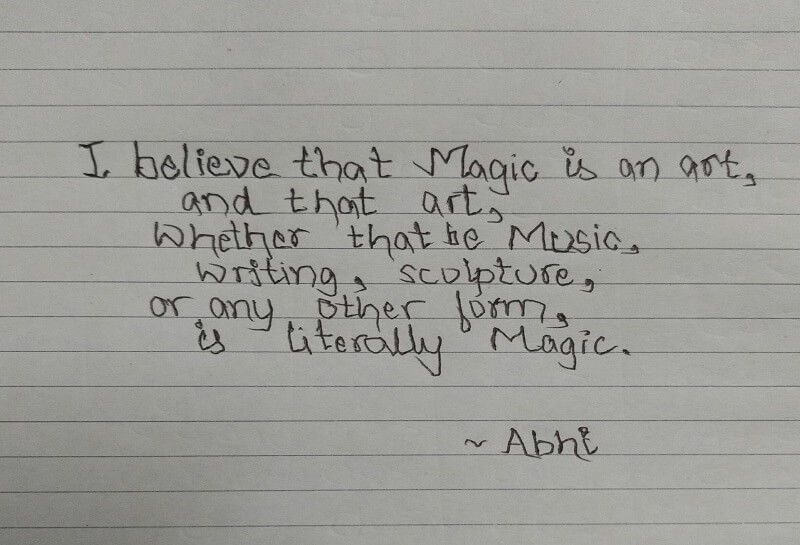 I believe that Magic is an art,
and that art,
Whether that be Music,
writing, sculpture,
or any other form,
is literally Magic.
~ Abhi